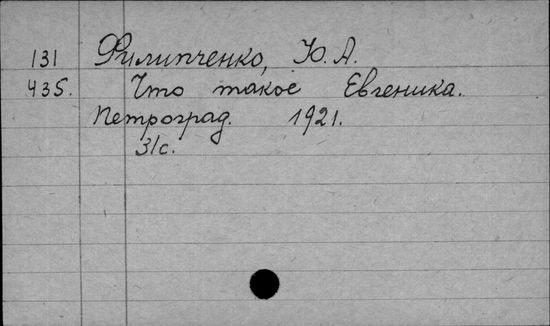 131 Филипченко, Ю. А.
435. Что такое Евгеника.
Петроград. 1921.
31с.